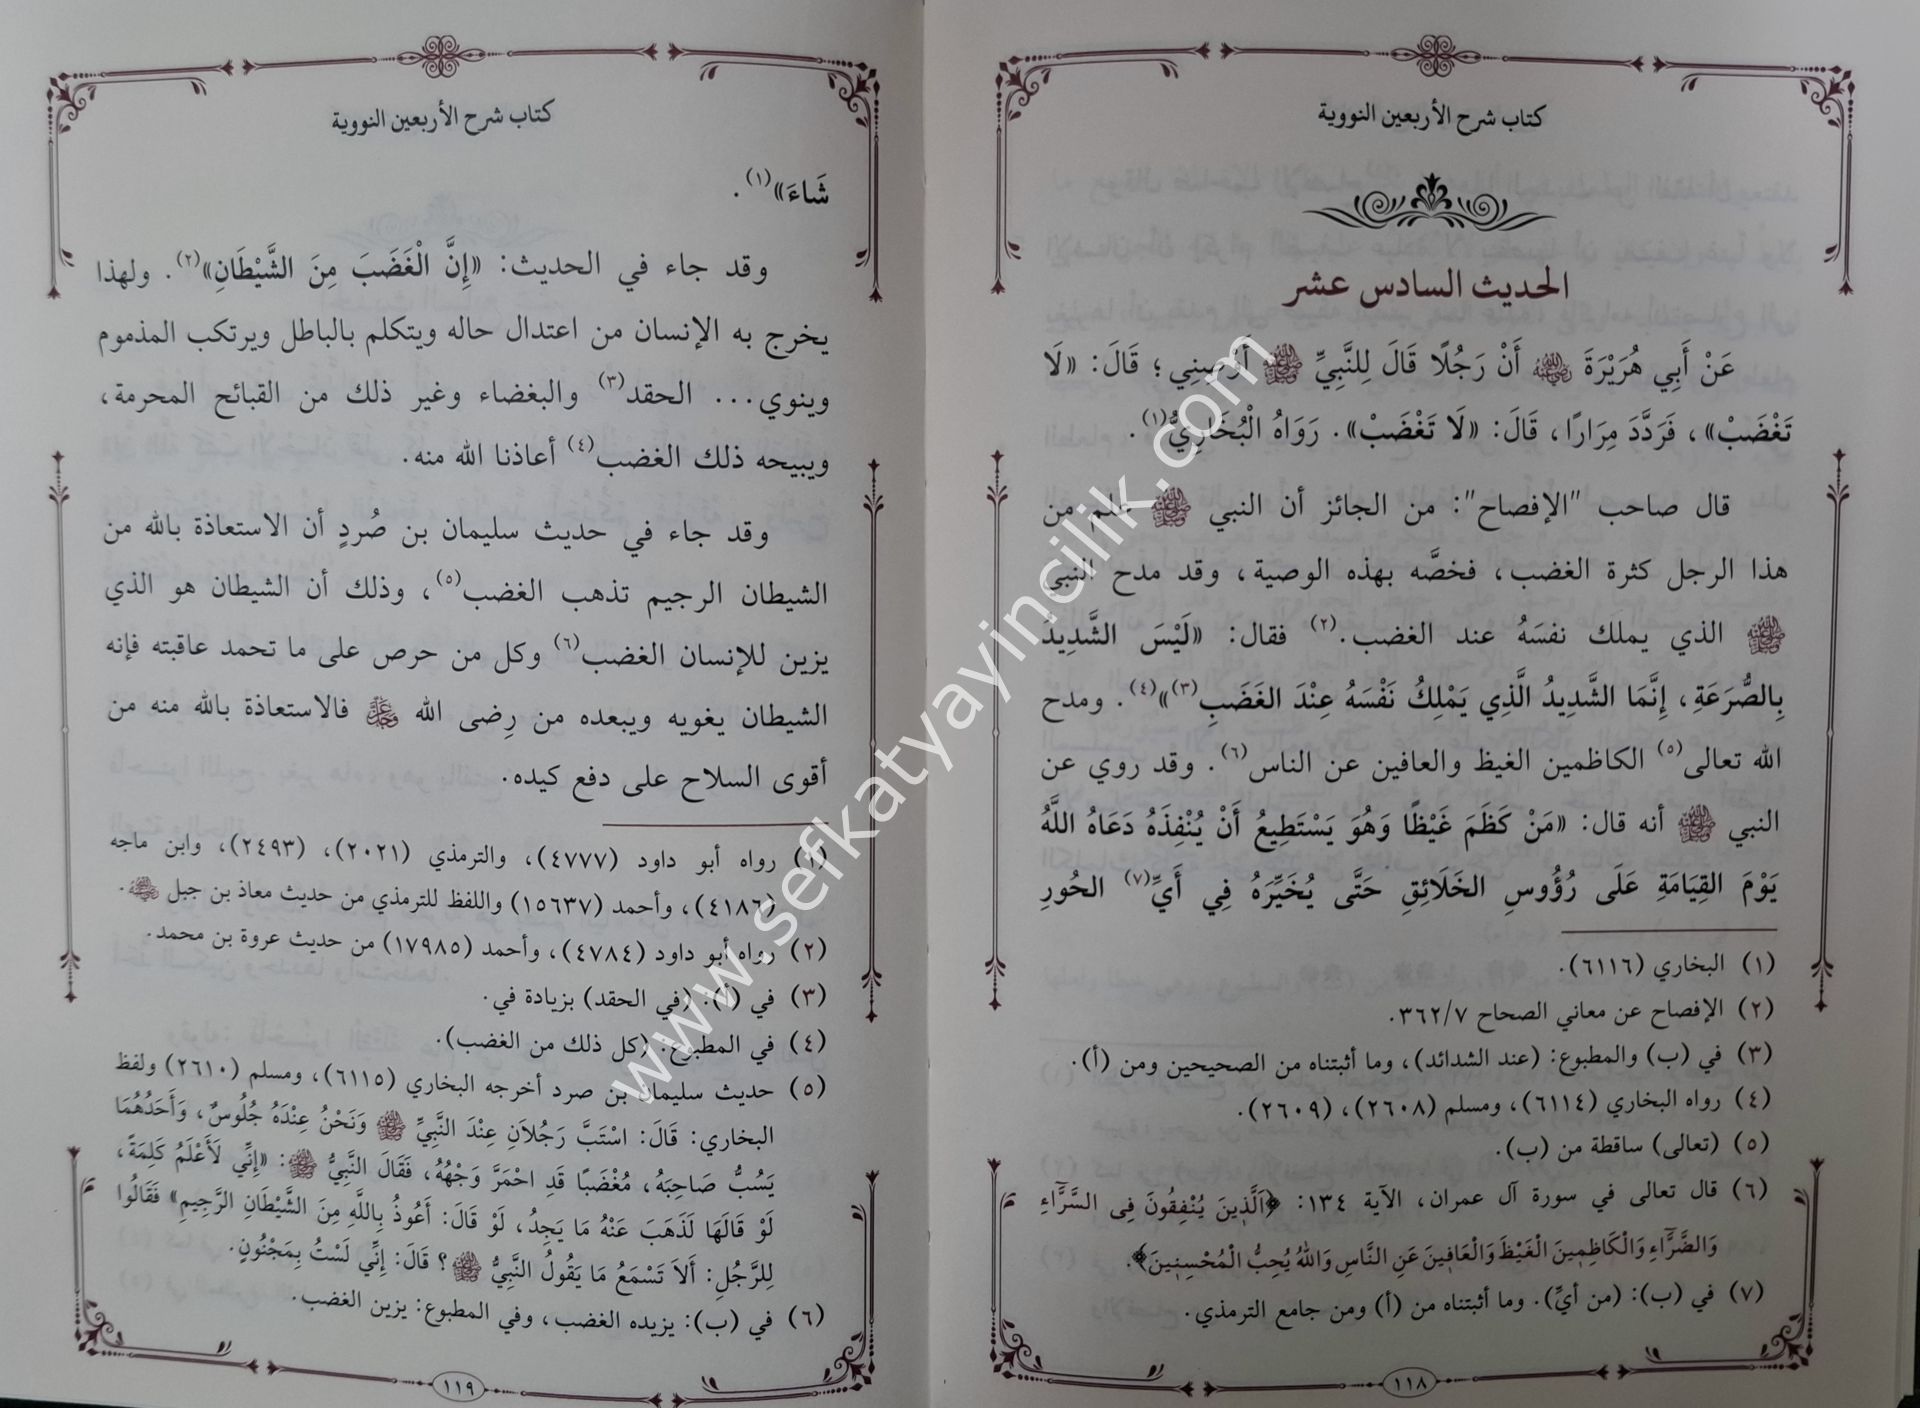 كتاب شرح الأربعين النووية
الحديث السادس عشر
عَنْ أَبِي هُرَيْرَةَ رضي الله عنه أَنْ رَجُلًا قَالَ لِلنَّبِيِّ ﷺ أَوْصِنِي؛ قَالَ: «لَا
تَغْضَبْ»، فَرَدَّدَ مِرَارًا، قَالَ: «لَا تَغْضَبْ». رَوَاهُ الْبُخَارِيُّ(١).
قال صاحب "الإفصاح": من الجائز أن النبي ﷺ علم من
هذا الرجل كثرة الغضب، فخصَّه بهذه الوصية، وقد مدح النبي
ﷺ الذي يملك نفسَهُ عند الغضب.(٢) فقال: «لَيْسَ الشَّدِيدُ
بِالصُّرَعَةِ، إِنَّمَا الشَّدِيدُ الَّذِي يَمْلِكُ نَفْسَهُ عِنْدَ الغَضَبِ(٣)»(٤). ومدح
الله تعالى(٥) الكاظمين الغيظ والعافين عن الناس(٦). وقد روي عن
النبي ﷺ أنه قال: «مَنْ كَظَمَ غَيْظًا وَهُوَ يَسْتَطِيعُ أَنْ يُنْفِذَهُ دَعَاهُ اللَّهُ
يَوْمَ القِيَامَةِ عَلَى رُؤُوسِ الخَلَائِقِ حَتَّى يُخَيِّرَهُ فِي أَيِّ(٧) الحُورِ
(١) البخاري (٦١١٦).
(٢) الإفصاح عن معاني الصحاح ٣٦٢/٧.
(٣) في (ب) والمطبوع: (عند الشدائد)، وما أثبتناه من الصحيحين ومن (أ).
(٤) رواه البخاري (٦١١٤)، ومسلم (٢٦٠٨)، (٢٦٠٩).
(٥) (تعالى) ساقطة من (ب).
(٦) قال تعالى في سورة آل عمران، الآية ١٣٤: ﴿اَلَّذِينَ يُنْفِقُونَ فِى السَّرَّٓاءِ
وَالضَّرَّٓاءِ وَالْكَاظِمِينَ الْغَيْظَ وَالْعَافِينَ عَنِ النَّاسِ وَاللهُ يُحِبُّ الْمُحْسِنِينَ﴾.
(٧) في (ب): (من أيِّ). وما أثبتناه من (أ) ومن جامع الترمذي.
١١٨
كتاب شرح الأربعين النووية
شَاءَ»(١).
وقد جاء في الحديث: «إِنَّ الْغَضَبَ مِنَ الشَّيْطَانِ»(٢). ولهذا
يخرج به الإنسان من اعتدال حاله ويتكلم بالباطل ويرتكب المذموم
وينوي... الحقد(٣) والبغضاء وغير ذلك من القبائح المحرمة،
ويبيحه ذلك الغضب(٤) أعاذنا الله منه.
وقد جاء في حديث سليمان بن صُردٍ أن الاستعاذة بالله من
الشيطان الرجيم تذهب الغضب(٥)، وذلك أن الشيطان هو الذي
يزين للإنسان الغضب(٦) وكل من حرص على ما تحمد عاقبته فإنه
الشيطان يغويه ويبعده من رِضى الله عز وجل فالاستعاذة بالله منه من
أقوى السلاح على دفع كيده.
(١) رواه أبو داود (٤٧٧٧)، والترمذي (٢٠٢١)، (٢٤٩٣)، وابن ماجه
(٤١٨٦)، وأحمد (١٥٦٣٧) واللفظ للترمذي من حديث معاذ بن جبل رضي الله عنه.
(٢) رواه أبو داود (٤٧٨٤)، وأحمد (١٧٩٨٥) من حديث عروة بن محمد.
(٣) في (أ): (في الحقد) بزيادة في.
(٤) في المطبوع: (كل ذلك من الغضب).
(٥) حديث سليمان بن صرد أخرجه البخاري (٦١١٥)، ومسلم (٢٦١٠) ولفظ
البخاري: قَالَ: اسْتَبَّ رَجُلَانِ عِنْدَ النَّبِيِّ ﷺ وَنَحْنُ عِنْدَهُ جُلُوسٌ، وَأَحَدُهُمَا
يَسُبُّ صَاحِبَهُ، مُغْضَبًا قَدِ احْمَرَّ وَجْهُهُ، فَقَالَ النَّبِيُّ ﷺ: «إِنِّي لَأَعْلَمُ كَلِمَةً،
لَوْ قَالَهَا لَذَهَبَ عَنْهُ مَا يَجِدُ، لَوْ قَالَ: أَعُوذُ بِاللَّهِ مِنَ الشَّيْطَانِ الرَّجِيمِ» فَقَالُوا
لِلرَّجُلِ: أَلَا تَسْمَعُ مَا يَقُولُ النَّبِيُّ ﷺ؟ قَالَ: إِنِّي لَسْتُ بِمَجْنُونٍ.
(٦) في (ب): يزيده الغضب، وفي المطبوع: يزين الغضب.
١١٩
www.sefkatyayincilik.com